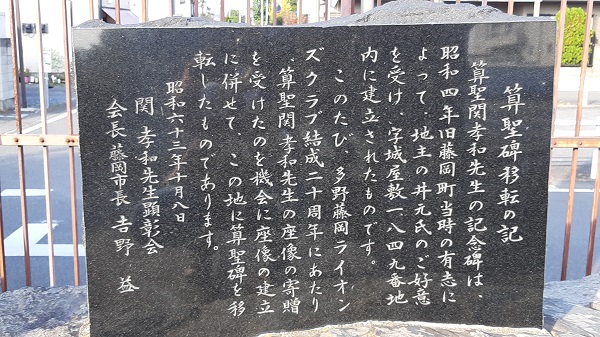 算聖碑移転の記
算聖関孝和先生の記念碑は、
昭和四年旧藤岡町当時の有志に
よって、地主の井元氏のご好意
を受け、字城屋敷一八四九番地
内に建立されたものです。
このたび、多野藤岡ライオン
ズクラブ結成二十周年にあたり
算聖関孝和先生の座像の寄贈
を受けたのを機会に座像の建立
に併せて、この地に算聖碑を移
転したものであります。
昭和六十三年十月八日
関孝和先生顕彰会
会長 藤岡市長 吉野 益